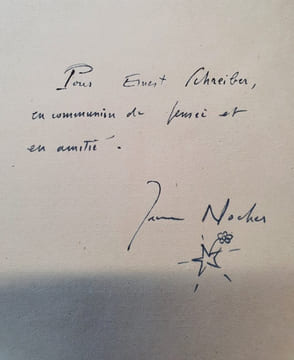 Pour Ernest Schreiber,
en communion de pensée et
en amitié.
Jean Nocher